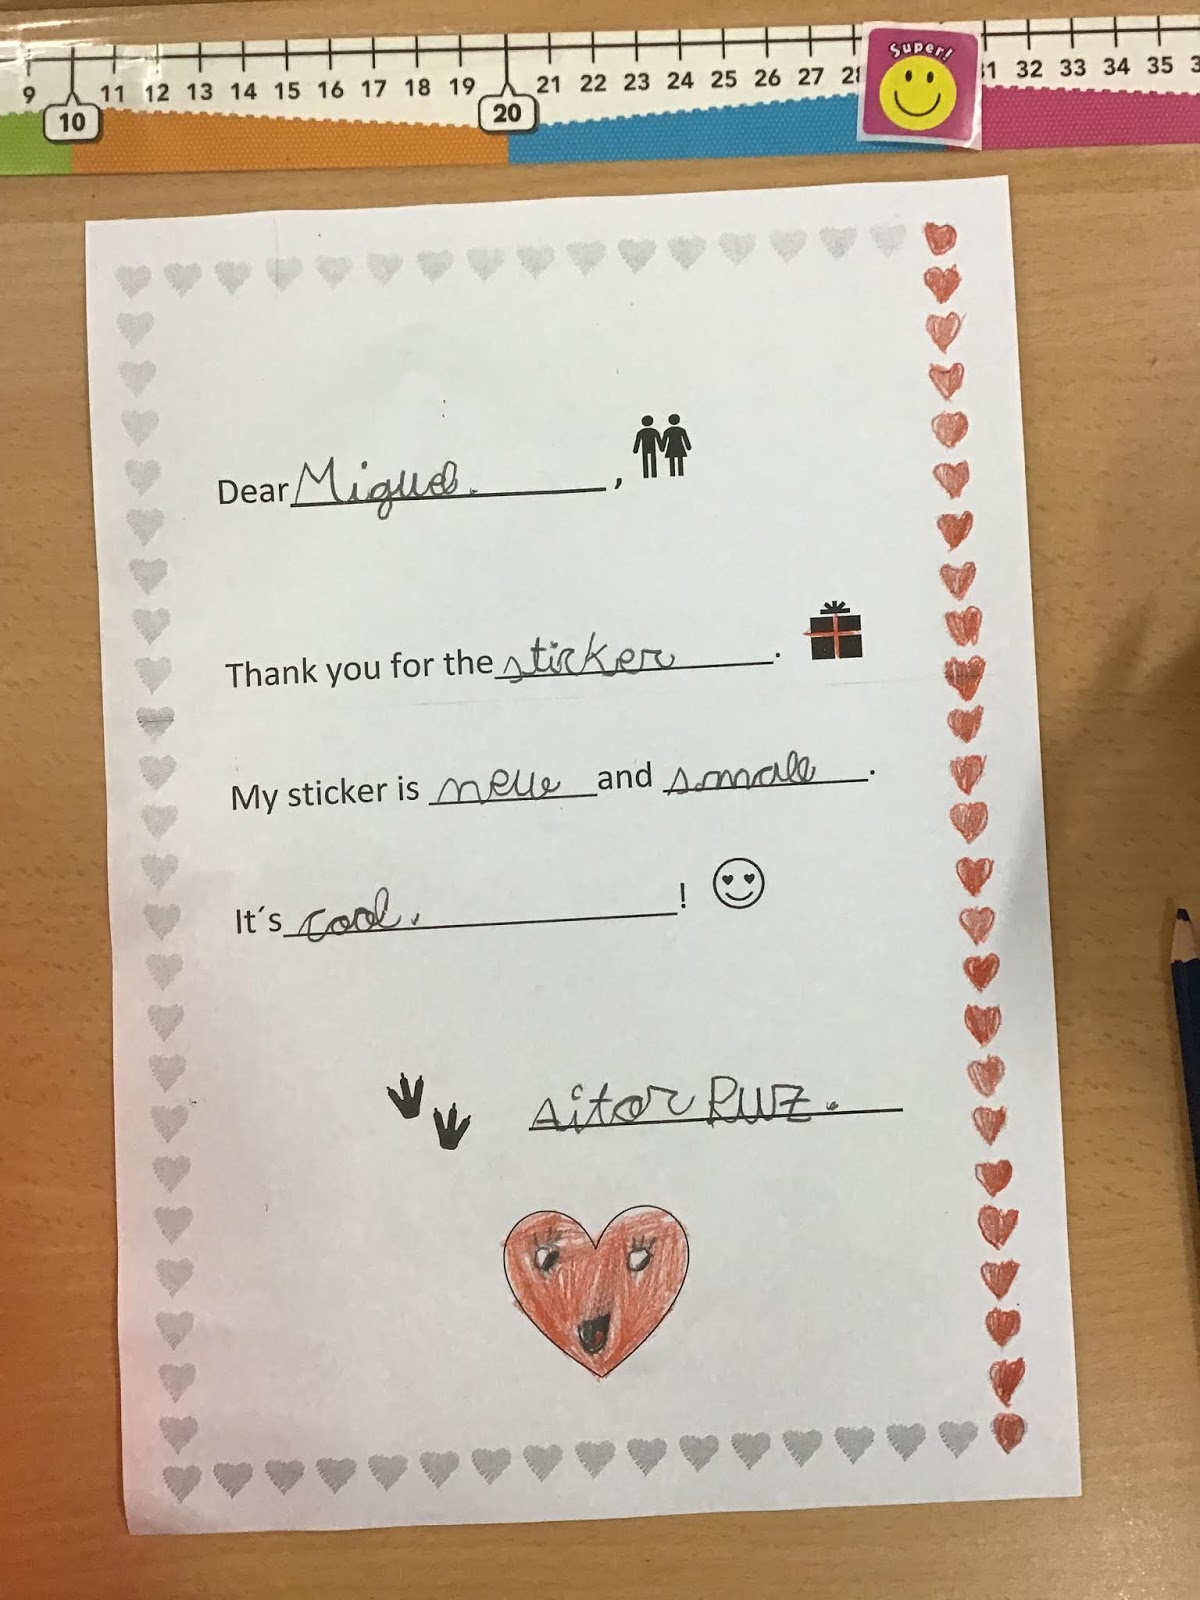 9 10 11 12 13 14 15 16 17 18 19 20 21 22 23 24 25 26 27 28 31 32 33 34 35 3
Super!
Dear Miguel. ,
Thank you for the sticker .
My sticker is new and small .
It´s cool. !
Aitor Ruz.